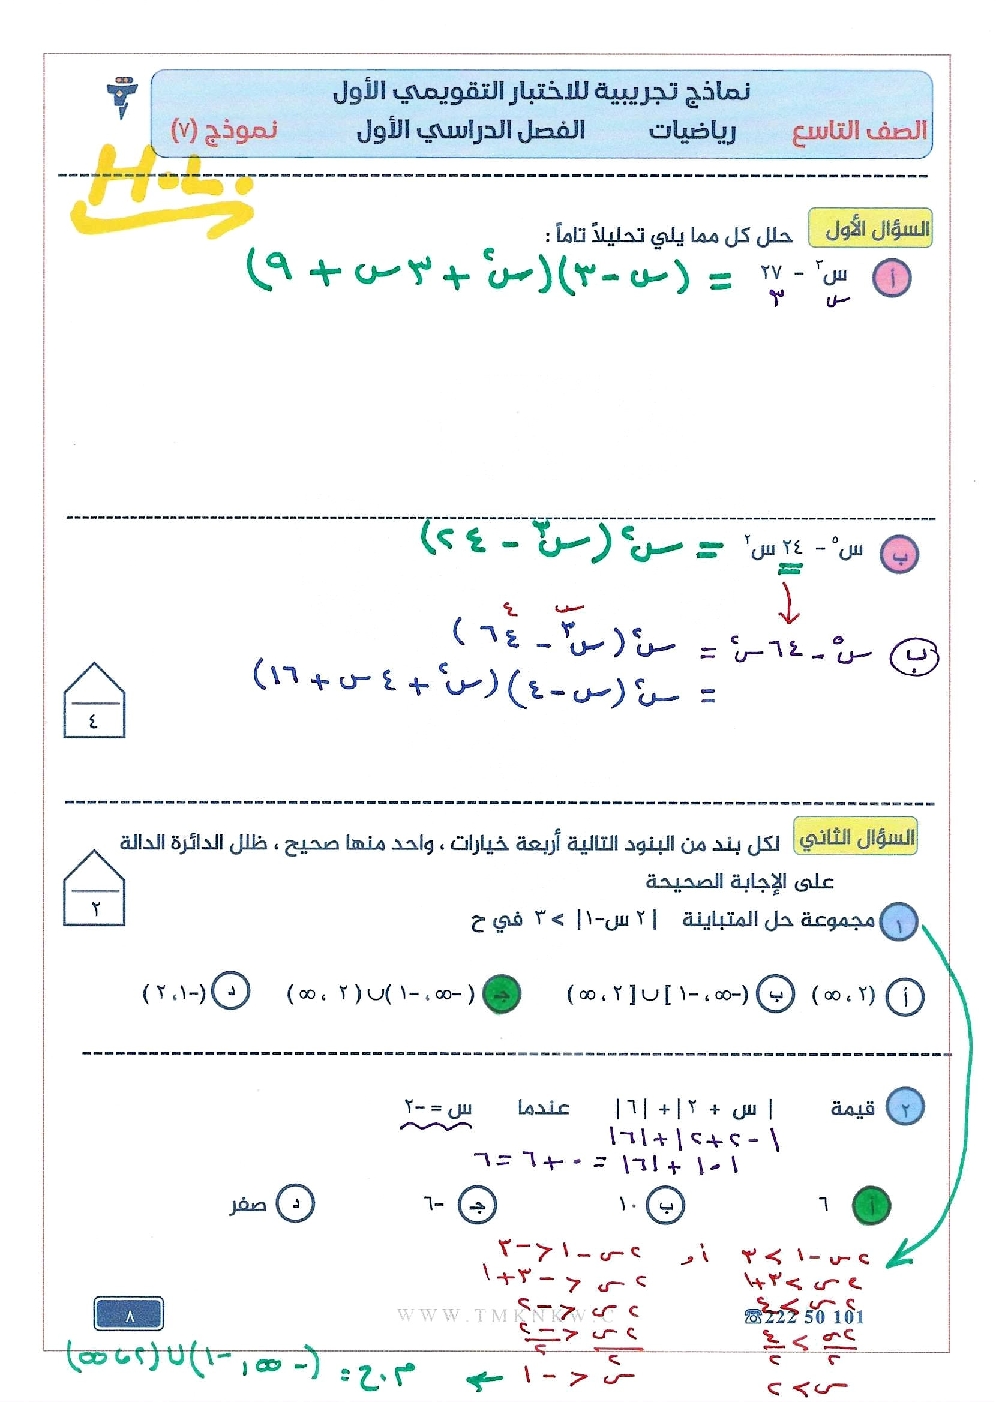 نماذج تجريبية للاختبار التقويمي الأول
الصف التاسع رياضيات الفصل الدراسي الأول نموذج (٧)
H.L.
السؤال الأول حلل كل مما يلي تحليلاً تاماً :
أ س³ - ٢٧ = (س - ٣)(س² + ٣س + ٩)
س ٣
ب س⁵ - ٢٤ س² = س² (س³ - ٢٤)
س ٤
ب س⁵ - ٦٤ س² = س² (س³ - ٦٤)
= س² (س - ٤)(س² + ٤س + ١٦)
٤
السؤال الثاني لكل بند من البنود التالية أربعة خيارات ، واحد منها صحيح ، ظلل الدائرة الدالة
على الإجابة الصحيحة
٢
١ مجموعة حل المتباينة |٢ س-١| > ٣ في ح
أ (٢ ، ∞) ب (-∞ ، -١] ∪ [٢ ، ∞) جـ (-∞ ، -١) ∪ (٢ ، ∞) د (-١ ، ٢)
٢ قيمة |س + ٢| + |٦| عندما س = -٢
|-٢+٢|+|٦|
|٠|+|٦| = ٠+٦=٦
أ ٦ ب ١٠ جـ -٦ د صفر
٢س-١ > ٣ أو ٢س-١ < -٣
٢س > ٣+١ ٢س < -٣+١
٢س > ٤ ٢س < -٢
٢س/٢ > ٤/٢ ٢س/٢ < -٢/٢
س > ٢ س < -١ ← م.ح = (-∞ ، -١) ∪ (٢ ، ∞)
٨
WWW.TMKNKW.C
☎222 50 101